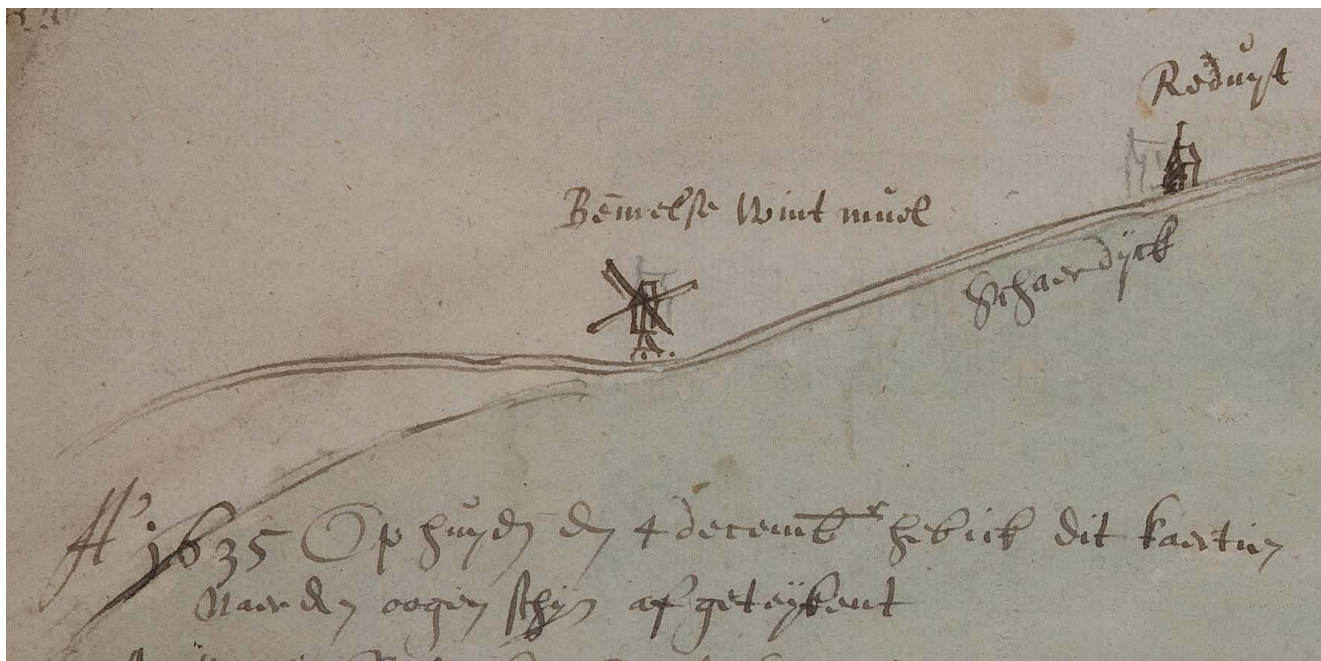 Reduyt
Bemelse Wint muel
Schaer dijck
A° 1635 Op huyden den 4 decemb^r heb ick dit kaertien
Naer den oogen schyn af geteijkent